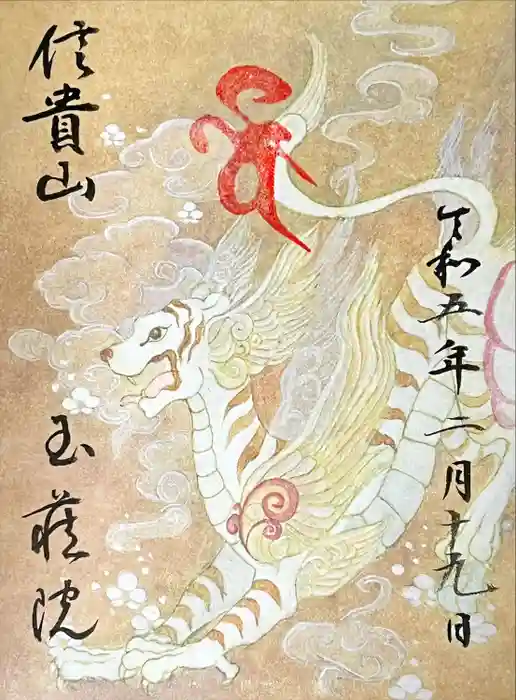 令和五年二月十九日
信貴山
玉蔵院